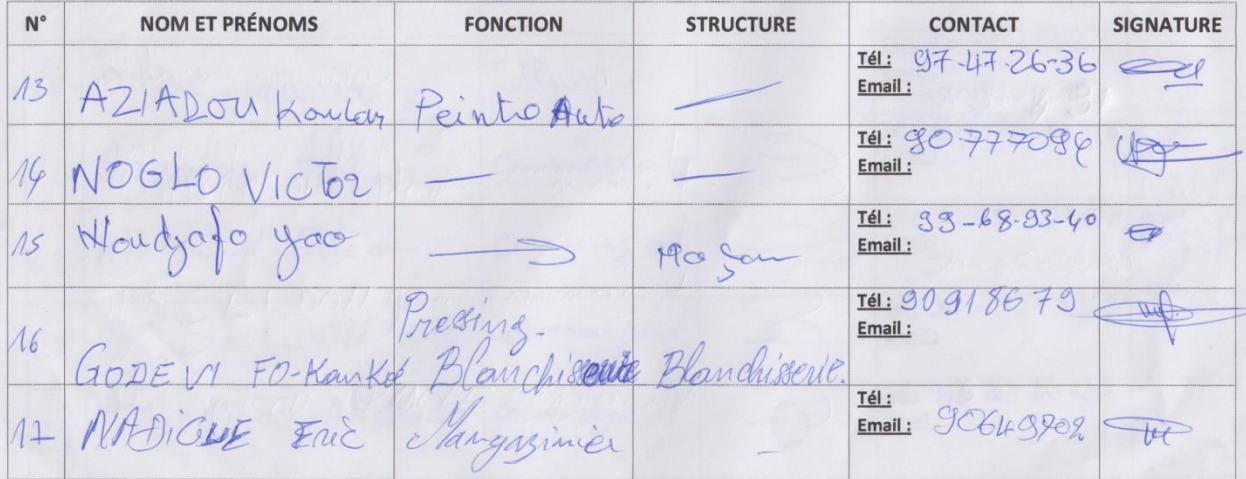 N° NOM ET PRÉNOMS FONCTION STRUCTURE CONTACT SIGNATURE
13 AZIADOU Peintre Auto — Tél : 97-47-26-36
Email :
14 NOGLO VICTOR — — Tél : 90777094
Email :
15 Houdjafo Yao Maçon Tél : 99-68-93-40
Email :
16 GODEVI FO-Kanké Pressing. Blanchisserie Blanchisserie. Tél : 90918679
Email :
17 NADIGUE Eric Mangazinier - Tél :
Email : 90649702